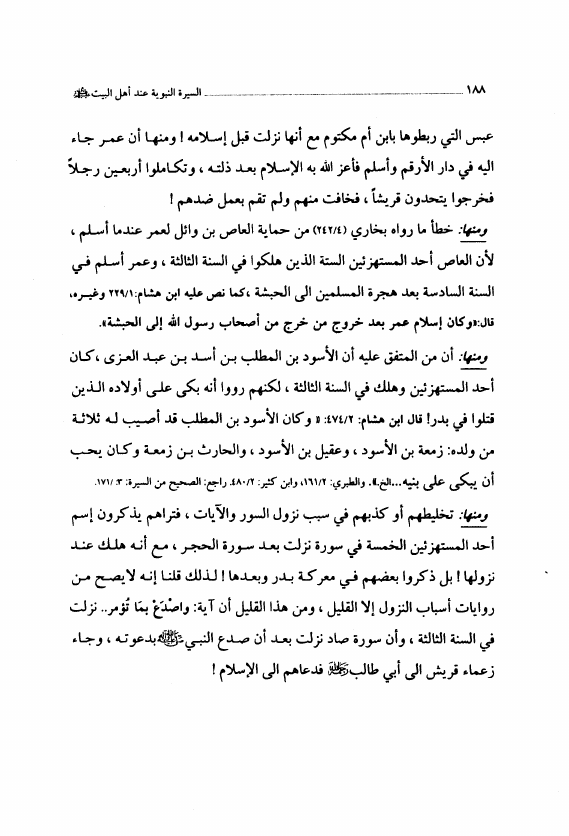 ١٨٨ السيرة النبوية عند أهل البيت
عبس التي ربطوها بابن أم مكتوم مع أنها نزلت قبل إسلامه ! ومنها أن عمر جاء
اليه في دار الأرقم وأسلم فأعز الله به الإسلام بعد ذلته ، وتكاملوا أربعين رجلاً
فخرجوا يتحدون قريشاً ، فخافت منهم ولم تقم بعمل ضدهم !
ومنها: خطأ ما رواه بخاري (٢٤٢/٤) من حماية العاص بن وائل لعمر عندما أسلم ،
لأن العاص أحد المستهزئين الستة الذين هلكوا في السنة الثالثة ، وعمر أسلم في
السنة السادسة بعد هجرة المسلمين الى الحبشة ،كما نص عليه ابن هشام:٢٢٩/١ وغيره،
قال:«وكان إسلام عمر بعد خروج من خرج من أصحاب رسول الله إلى الحبشة».
ومنها: أن من المتفق عليه أن الأسود بن المطلب بن أسد بن عبد العزى ،كان
أحد المستهزئين وهلك في السنة الثالثة ، لكنهم رووا أنه بكى على أولاده الذين
قتلوا في بدر! قال ابن هشام: ٤٧٤/٢: « وكان الأسود بن المطلب قد أصيب له ثلاثة
من ولده: زمعة بن الأسود ، وعقيل بن الأسود ، والحارث بن زمعة وكان يحب
أن يبكى على بنيه...الخ.». والطبري: ١٦١/٢، وابن كثير: ٤٨٠/٢. راجع: الصحيح من السيرة: ٣/ ١٧١.
ومنها: تخليطهم أو كذبهم في سبب نزول السور والآيات ، فتراهم يذكرون إسم
أحد المستهزئين الخمسة في سورة نزلت بعد سورة الحجر ، مع أنه هلك عند
نزولها ! بل ذكروا بعضهم في معركة بدر وبعدها ! لذلك قلنا إنه لايصح من
روايات أسباب النزول إلا القليل ، ومن هذا القليل أن آية: واصْدَعْ بمَا تُؤمر.. نزلت
في السنة الثالثة ، وأن سورة صاد نزلت بعد أن صدع النبي ﷺ بدعوته ، وجاء
زعماء قريش الى أبي طالب فدعاهم الى الإسلام !